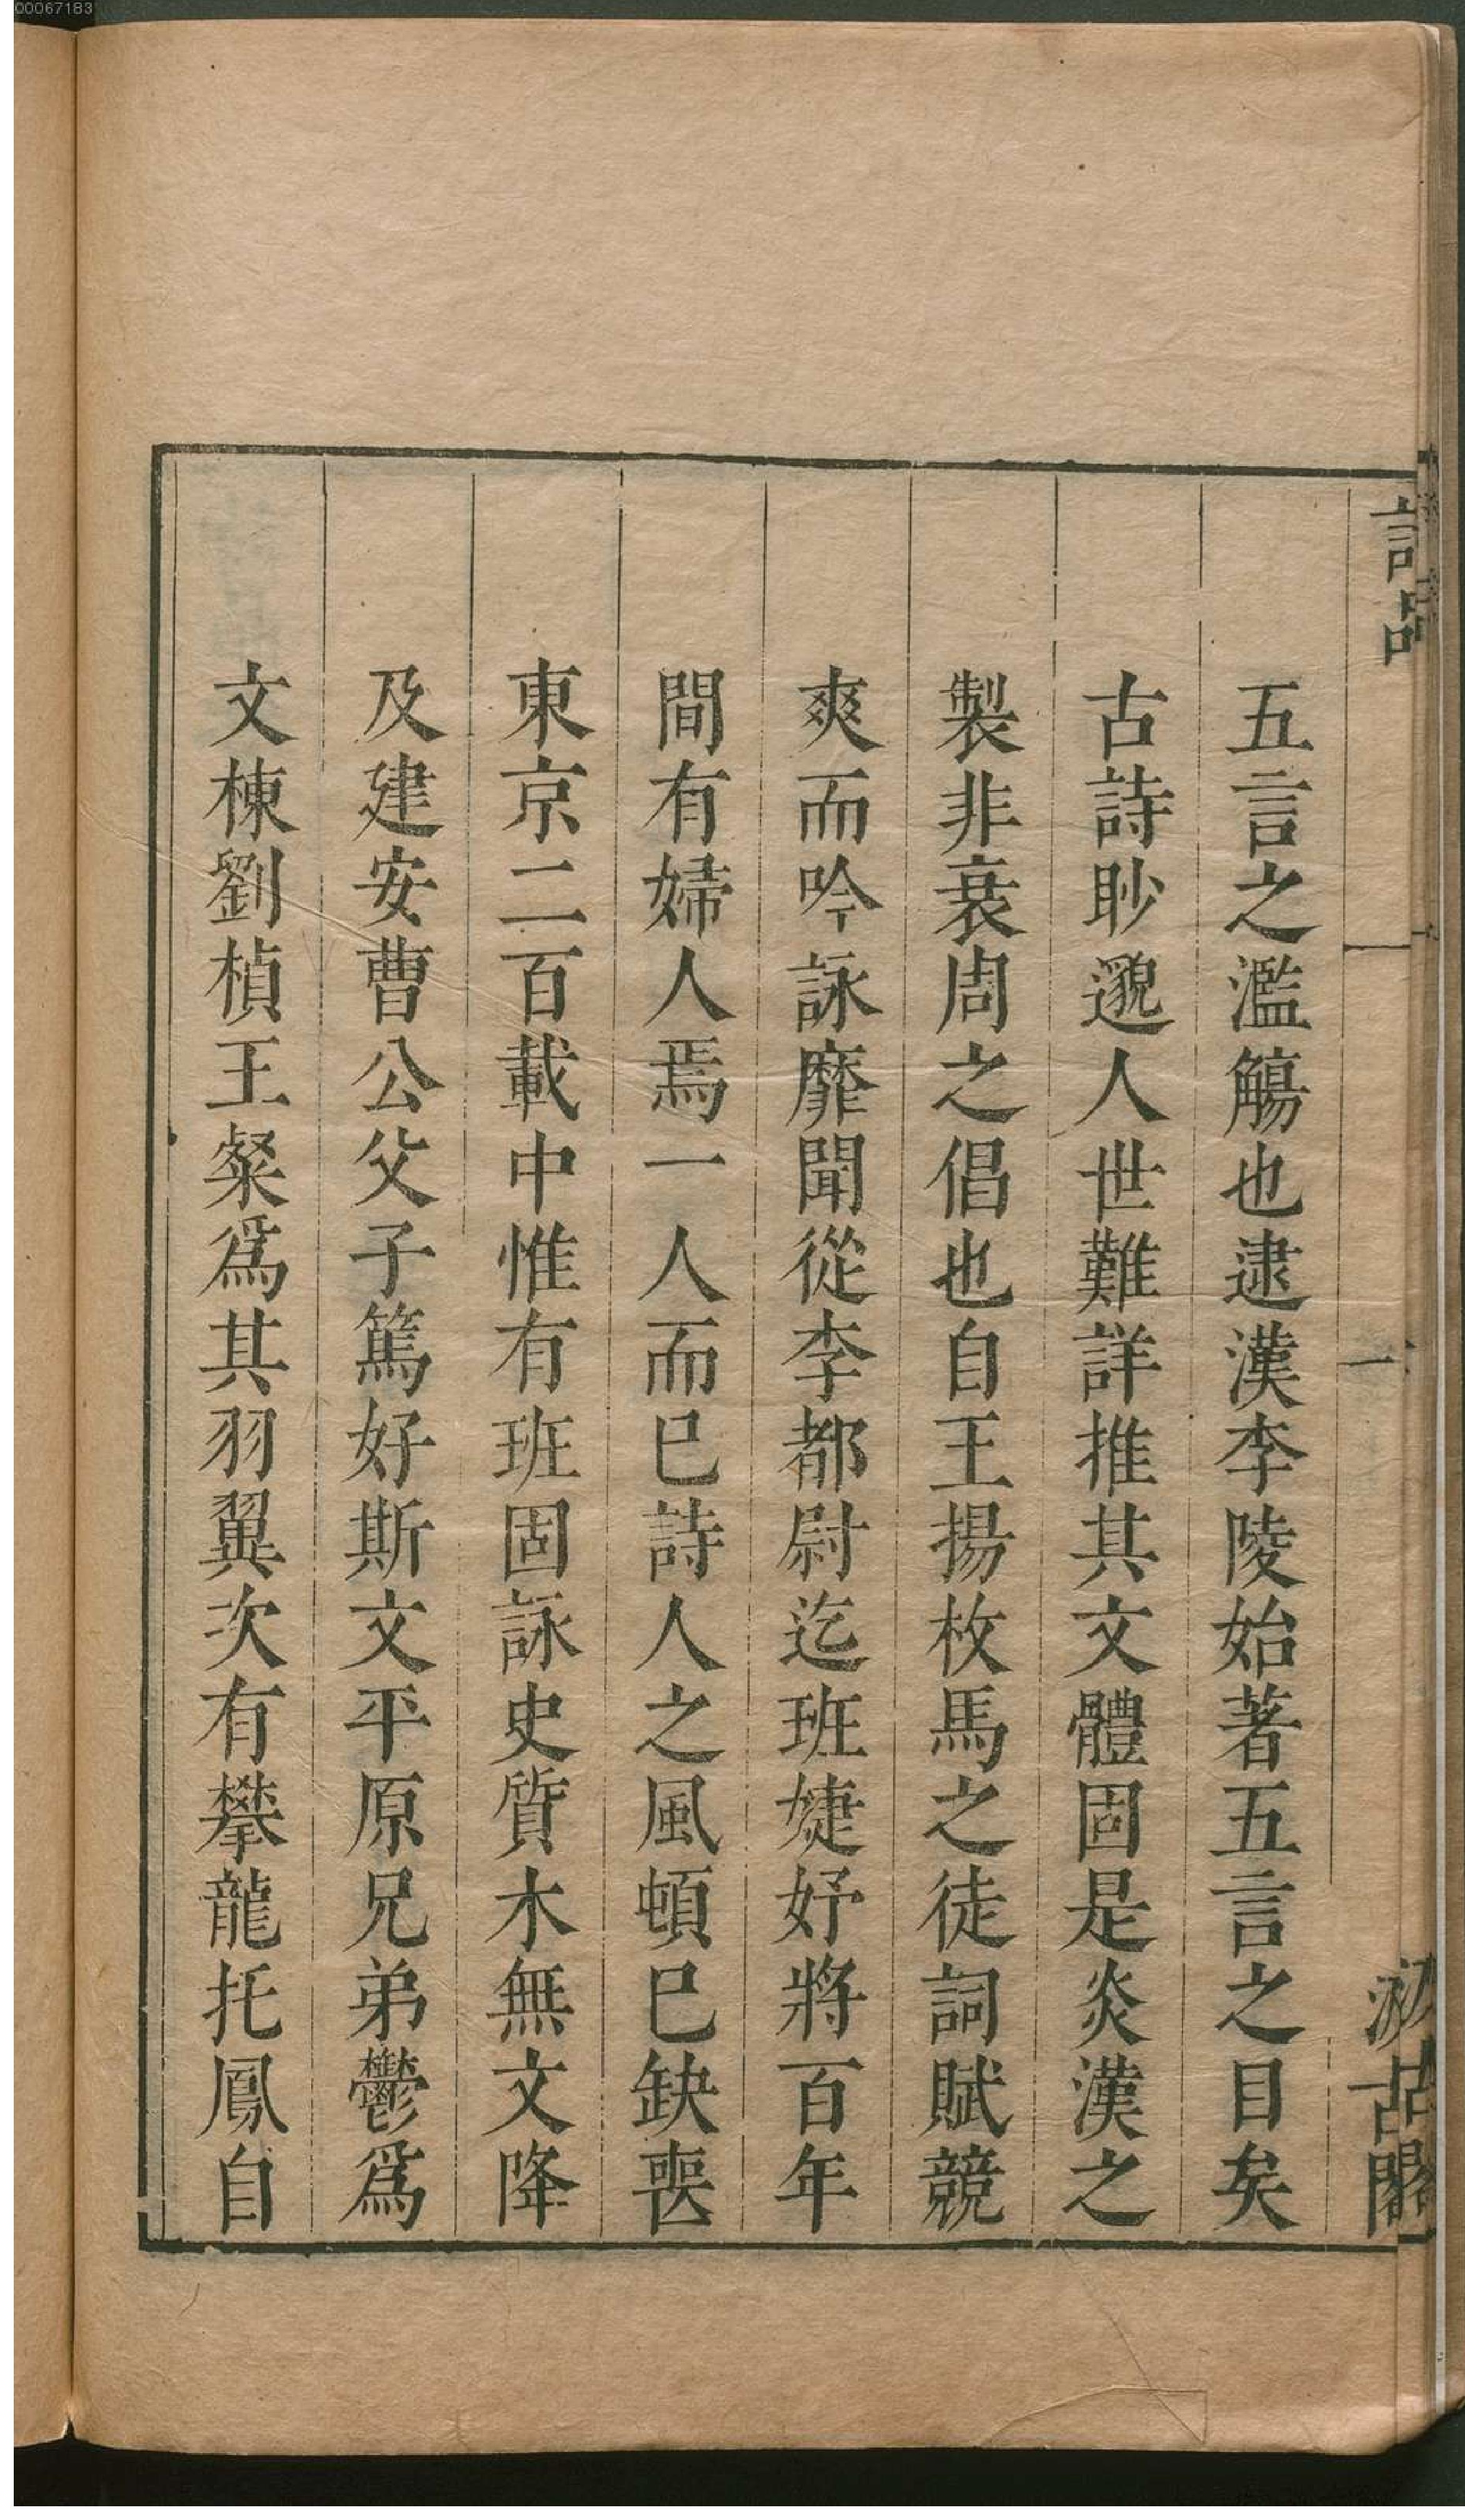 00067183
詩品
一
汲古閣
五言之濫觴也逮漢李陵始著五言之目矣
古詩眇邈人世難詳推其文體固是炎漢之
製非衰周之倡也自王揚枚馬之徒詞賦競
爽而吟詠靡聞從李都尉迄班婕妤將百年
間有婦人焉一人而巳詩人之風頓巳缺喪
東京二百載中惟有班固詠史質木無文降
及建安曹公父子篤好斯文平原兄弟鬱爲
文棟劉楨王粲爲其羽翼次有攀龍托鳳自